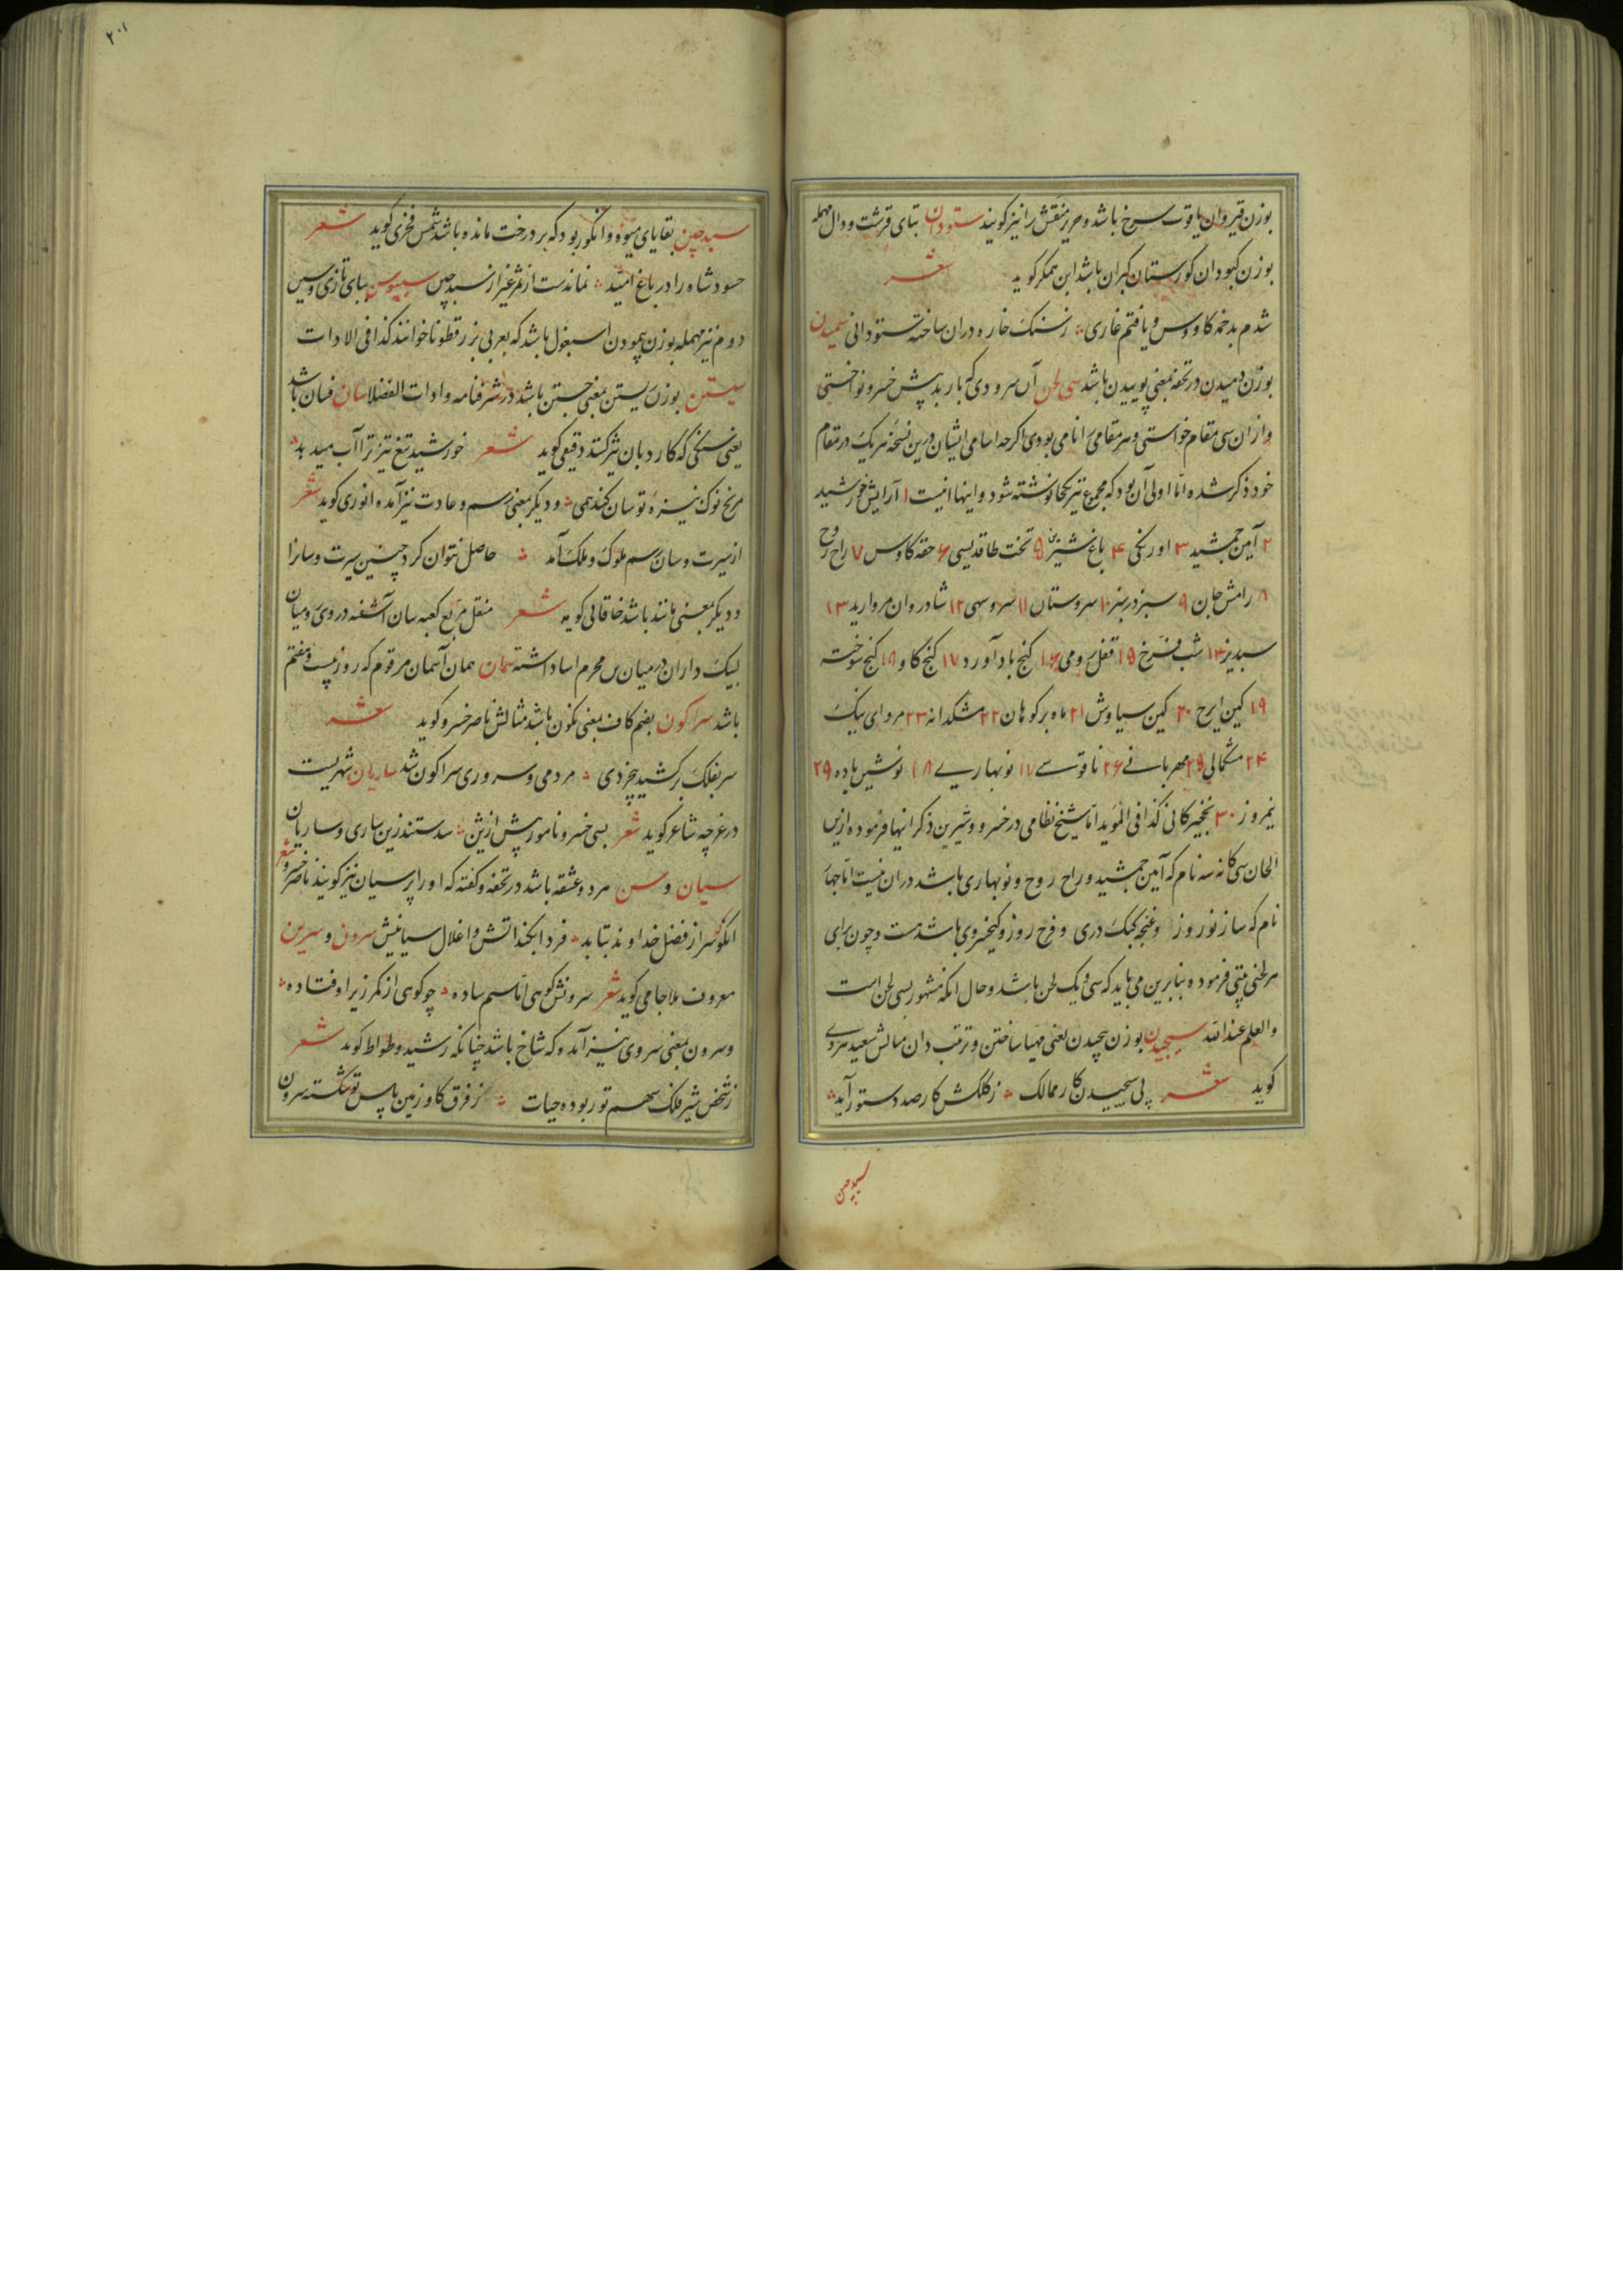 بوزن قیروان یاقوت سرخ باشد و حریر منقش را نیز گویند ستودان بتای قرشت و دال مهمله
بوزن کبودان گورستان گبران باشد ابن همکر گوید شعر
شدم بدخمه کاووس و یافتم غاری ز سنک خاره دران ساخته ستودانی سمیدن
بوزن دمیدن در تحفه بمعنی پوییدن باشد سی لحن آن سرودی که باربد پیش خسرو نواختی
و ازان سی مقام خواستی و هر مقامی را نامی بودی اگرچه اسامی ایشان درین نسخه هریک در مقام
خود ذکر شده اما اولی آن بود که مجموع نیز یکجا نوشته شود و اینها اینست ۱ آرایش خورشید
۲ آیین جمشید ۳ اورنکی ۴ باغ شیرین ۵ تخت طاقدیسی ۶ حقه کاوس ۷ راح روح
۸ رامش جان ۹ سبز در سبز ۱۰ سروستان ۱۱ سرو سهی ۱۲ شادروان مروارید ۱۳
شبدیز ۱۴ شب فرخ ۱۵ قفل رومی ۱۶ کنج بادآورد ۱۷ کنج کاو ۱۸ کنج سوخته
۱۹ کین ایرج ۲۰ کین سیاوش ۲۱ ماه بر کوهان ۲۲ مشکدانه ۲۳ مروای نیک
۲۴ مشکمالی ۲۵ مهربانی ۲۶ ناقوسی ۲۷ نوبهاری ۲۸ نوشین باده ۲۹
نیمروز ۳۰ نخجیرکانی کذا فی المؤید اما شیخ نظامی در خسرو و شیرین ذکر اینها فرموده ازین
الحان سی کانه سه نام که آیین جمشید و راح روح و نوبهاری باشد دران نیست اما چهار
نام که ساز نوروز و غنچه کبک دری و فرخ روز و کیخسروی باشد هست و چون برای
هر لحنی بیتی فرموده بنابرین می باید که سی و یک لحن باشد و حال انکه مشهور بسی لحن است
والعلم عند الله سیجیدن بوزن پیچیدن یعنی مهیا ساختن و ترتیب دان مثالش سعید هروی
گوید شعر پی سیجیدن کار ممالک ز کلکش کار صد دستور آید
سبدچین
۲۰۱
سبدچین بقایای میوه و انگور بود که بر درخت مانده باشد شمس فخری گوید شعر
حسود شاه را در باغ امید نماندست از ثمر غیر از سبدچین سپیوس ببای تازی و سین
دوم نیز مهمله بوزن پیمودن اسبغول باشد که بعربی بزرقطونا خوانند کذا فی الادات
سیتن بوزن بستن بمعنی جستن باشد در شرفنامه و ادات الفضلا سان فسان باشد
یعنی سنگی که کارد بان تیز کنند دقیقی گوید شعر خورشید تیغ تیز ترا آب میدهد
مریخ نوک نیزه تو سان کند همی و دیگر بمعنی رسم و عادت نیز آمده انوری گوید شعر
از سیرت و سان رسم ملوک و ملک آمد حاصل نتوان کرد چنین سیرت و سان را
و دیگر بمعنی مانند باشد خاقانی گوید شعر منقل مربع کعبه سان آشفته در وی رومیان
لبیک داران در میان محرم اسا داشته سمان همان آسمان مرقوم که روز بیست و هفتم
باشد سراکون بضم کاف بمعنی نکون باشد مثالش ناصر خسرو گوید شعر
سر بفلک برکشید بیخردی مردمی و سروری سراکون شد ساریان شهریست
در غرچه شاعر گوید شعر بسی خسرو نامور پیش ازین شدستند زین ساری و ساریان
سیان و سن مرد و عشقه باشد در تحفه و گفته که او را پرسیان نیز گویند ناصر خسرو شعر
انکو سر از فضل خداوند بتابد فردا بکند آتش و اغلال سیانیش سرون و سرین
معروف ملا جامی گوید شعر سرونش کوهی اما سیم ساده چو کوهی از کمر زیر اوفتاده
و سرون بمعنی سروی نیز آمده که شاخ باشد چنانکه رشید وطواط گوید شعر
ز شخص شیر فلک سهم تو ربوده حیات ز فرق کاو زمین باس تو شکسته سرون